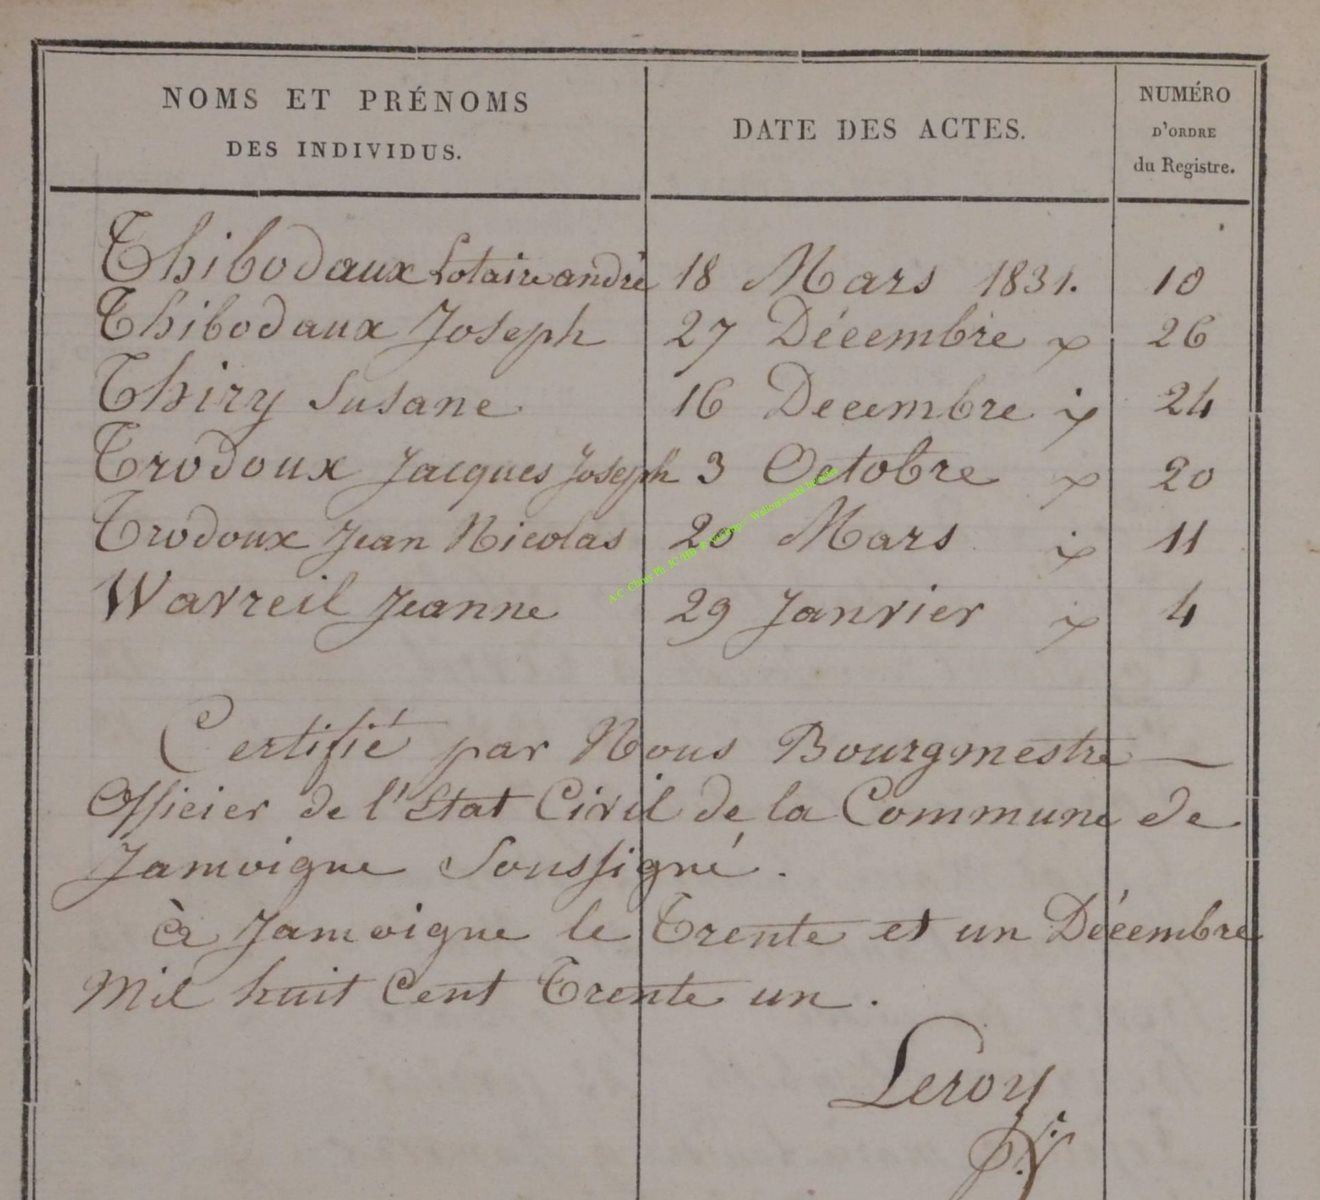 NOMS ET PRÉNOMS DES INDIVIDUS. DATE DES ACTES. NUMÉRO D'ORDRE du Registre.
Thibodaux Lotaire andrè 18 Mars 1831. 10
Thibodaux Joseph 27 Décembre 26
Thiry Susane 16 Decembre 24
Trodoux Jacques Joseph 3 Octobre 20
Trodoux Jean Nicolas 20 Mars 11
Wavreil Jeanne 29 Janvier 4
Certifié par Nous Bourgmestre
Officier de l'Etat Civil de la Commune de
Jamoigne Soussigné.
à Jamoigne le Trente et un Décembre
Mil huit Cent Trente un.
Leroy